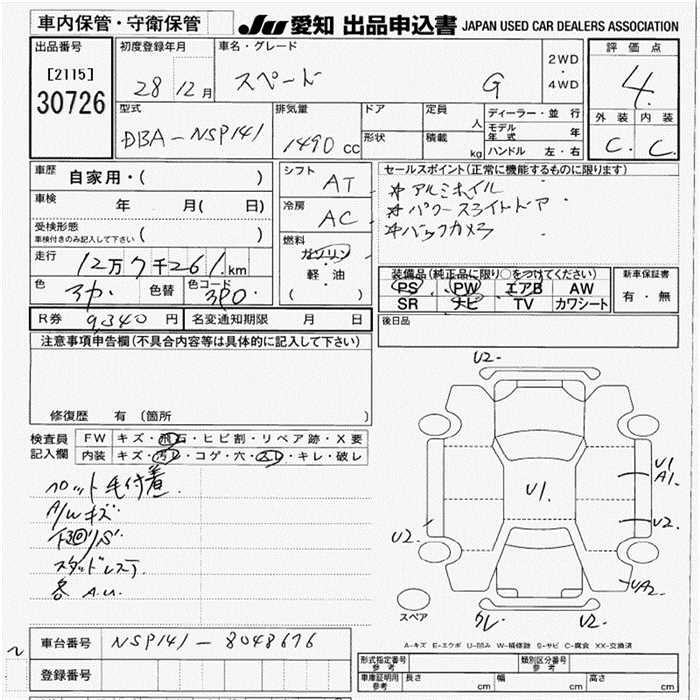 車内保管・守衛保管
JU 愛知 出品申込書 JAPAN USED CAR DEALERS ASSOCIATION
出品番号
[2115]
30726
初度登録年月
28 12月
車名・グレード
スペード G
2WD
・
4WD
評価点
4
外装 内装
C C
型式
DBA-NSP141
排気量
1490 cc
ドア
形状
定員 人
積載 kg
ディーラー・並行
モデル年式 年
ハンドル 左・右
車歴
自家用・( )
車検 年 月( 日)
受検形態
車検付きのみ記入して下さい ( )
走行
12万7千261 km
色 色替 色コード
3P0
シフト
AT
冷房
AC
燃料
ガソリン
軽油
( )
セールスポイント(正常に機能するものに限ります)
☆アルミホイル
☆パワースライドドア
☆バックカメラ
装備品(純正品に限り○をつけてください)
PS PW エアB AW
SR ナビ TV カワシート
新車保証書
有・無
R券 9,340 円 名変通知期限 月 日
後日品
注意事項申告欄(不具合内容等は具体的に記入して下さい)
修復歴 有(箇所 )
検査員
記入欄
FW キズ・飛石・ヒビ割・リペア跡・X要
内装 キズ・汚レ・コゲ・穴・スレ・キレ・破レ
フロット毛付着
A/Wキズ
下回りS
スタッドレス
各A.U.
U2-
U1
U1
A1
U2-
U2-
UA2
U2-
スペア
A=キズ E=エクボ U=凹み W=補修跡 S=サビ C=腐食 XX=交換済
車台番号 NSP141-8048676
登録番号
形式指定番号
参考
類別区分番号
参考
車庫証明用
参考
長さ cm 幅 cm 高さ cm